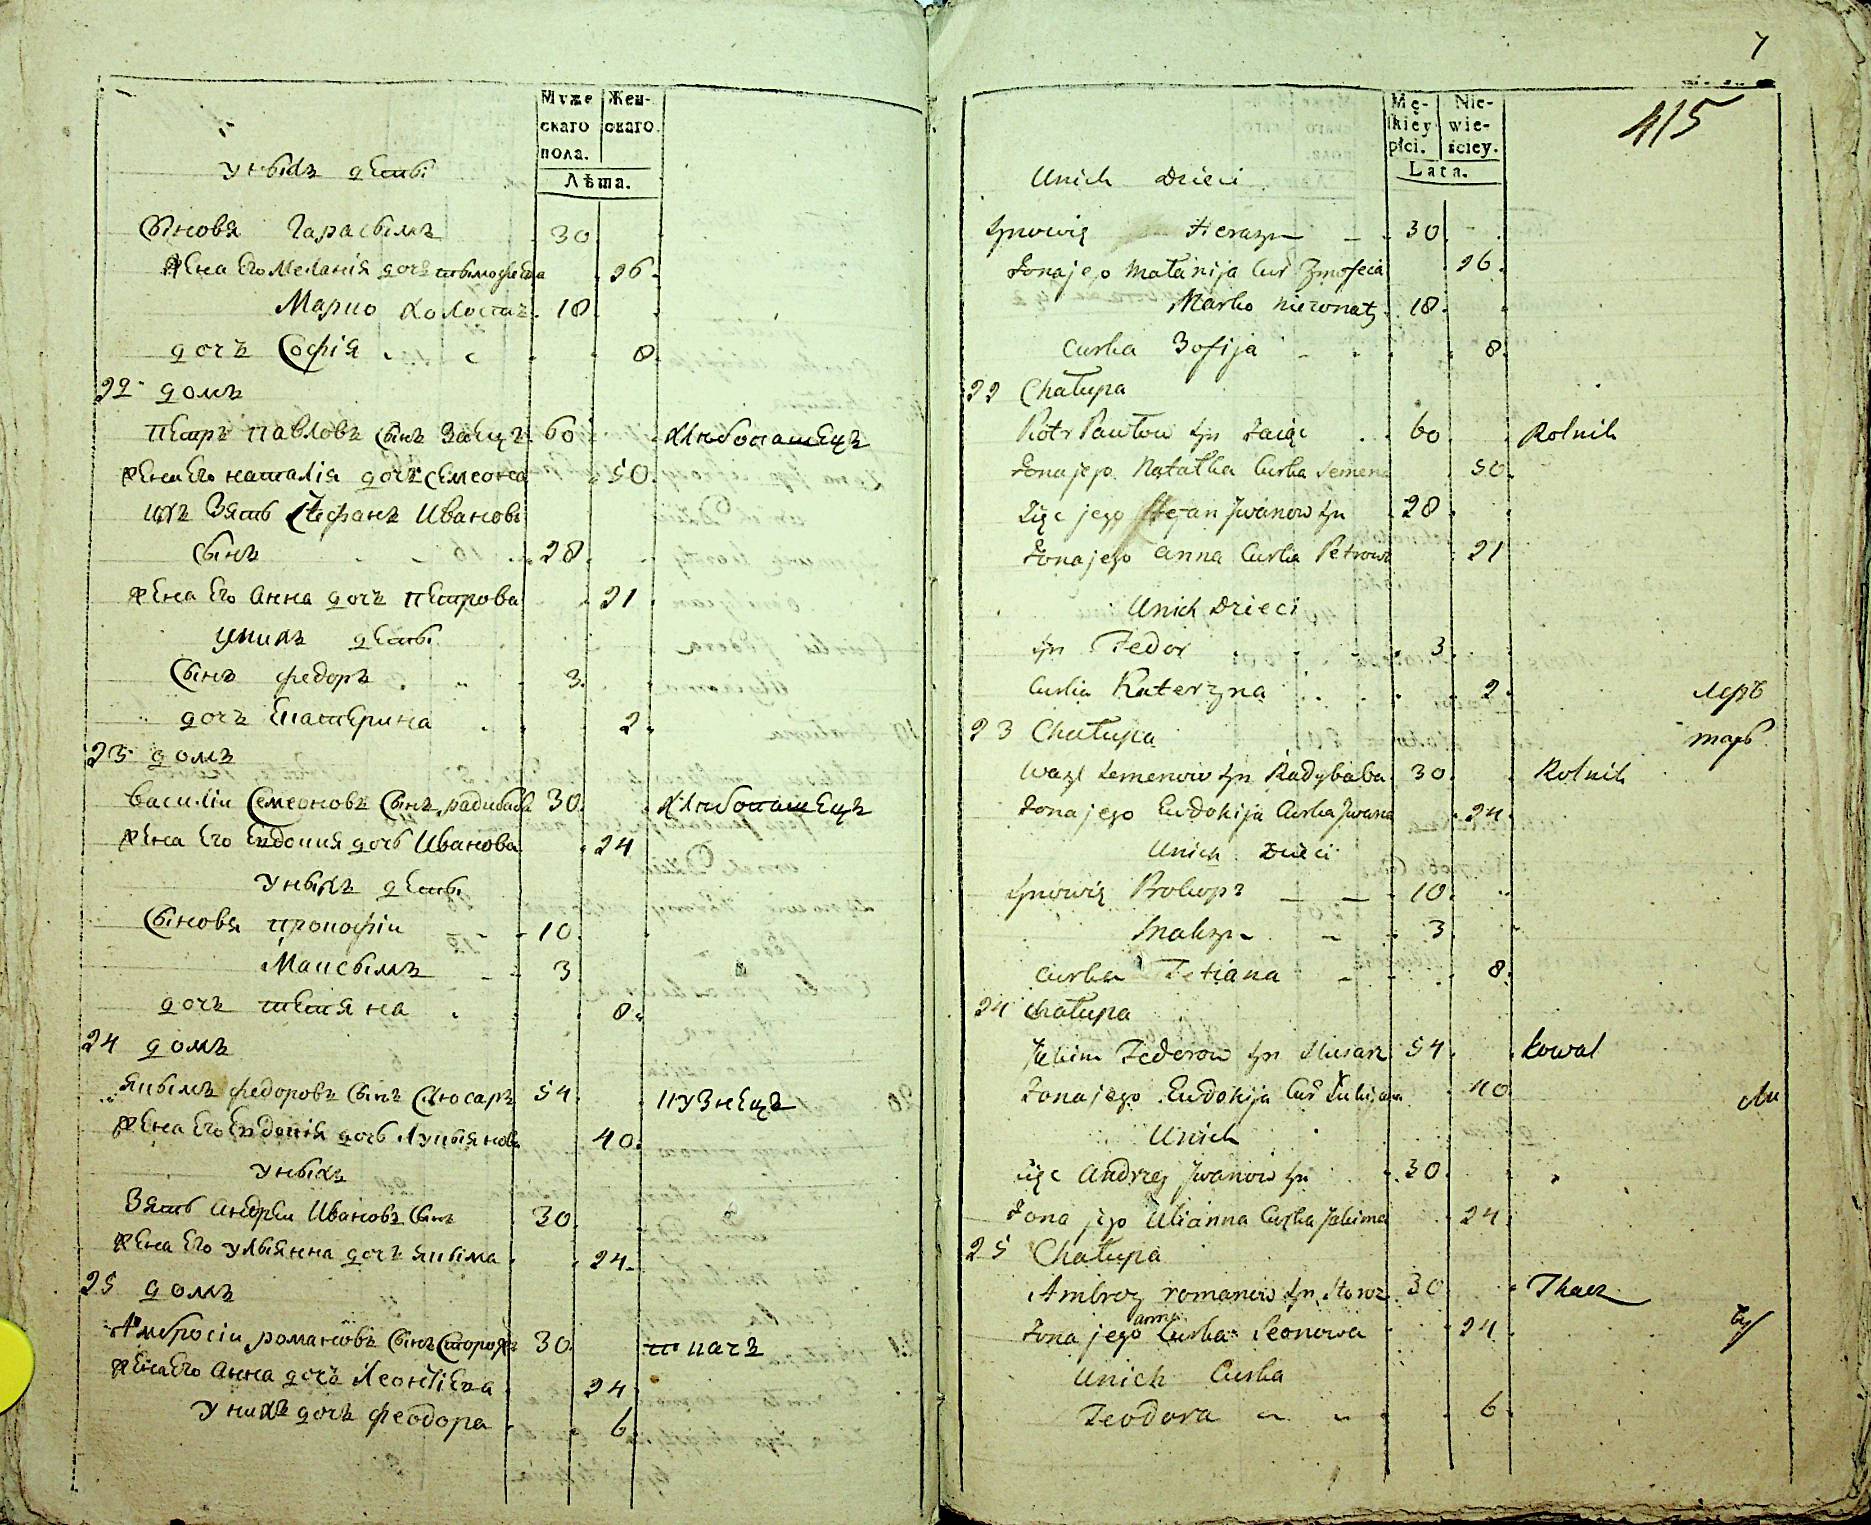 Муже
скаго
пола.
Жен-
скаго.
Лѣта.
У ныхъ дѣти
Сыновя Гарасымъ 30
жена Его Меланія дочъ тымофеева 26
Марко холостъ 18
дочъ Софія 8
22 домъ
Петръ Павловъ сынъ Заецъ 60 хлѣбопашецъ
жена Его наталія дочъ Семеона 50
ихъ Зять Стефанъ Ивановъ
сынъ 28
жена Его Анна дочъ Петрова 21
У нихъ дѣти
Сынъ федоръ 3
дочъ Екатерина 2
23 домъ
Василіи Семеоновъ Сынъ радибаба 30 хлѣбопашецъ
жена Его Евдокия дочь Иванова 24
У ныхъ дѣти
Сыновя прокофіи 10
Максымъ 3
дочъ тетяна 8
24 домъ
якымъ федоровъ сынъ Слюсаръ 54 кузнецъ
жена Его Евдокія дочь Лукыянова 40
У ныхъ
Зять Андреи Ивановъ Сынъ 30
жена Его Ульянна дочъ якыма 24
25 домъ
Амбросіи романовъ Сынъ Сторожъ 30 ткачъ
жена Его Анна дочъ Леонтіева 24
У нихъ дочъ феодора 6
7
415
Mę-
skiey
płci.
Nie-
wie-
sciey.
Lata.
Unich Dzieci
Synowie Herasym 30
Żona jego Małanija Cur Tymofeia 26
Marko nieżonaty 18
Curka Zofija 8
22 Chałupa
Piotr Pawłow Syn Zaiąc 60 Rolnik
Żona jego Natalka Curka Semena 50
Zięc jego Stefan Jwanow Syn 28
Żona jego Anna Curka Petrowa 21
Unich Dzieci
Syn Fedor 3
Curka Katerzyna 2
23 Chałupa
Wasyl Semenow Syn Radybaba 30 Rolnik
Żona jego Eudokija Curka Jwana 24
Unich Dzieci
Synowie Prokop 10
Maksym 3
Curka Tetiana 8
24 Chałupa
Jakim Federow Syn Slusarz 54 Kowal
Żona jego Eudokija Cur Łukijana 40
Unich
Zięc Andrzej Jwanow Syn 30
Żona jego Ulianna Curka Jakima 24
25 Chałupa
Ambroży romanow Syn Storoż 30 Tkacz
Żona jego anna Curka Leonowa 24
Unich Curka
Teodora 6